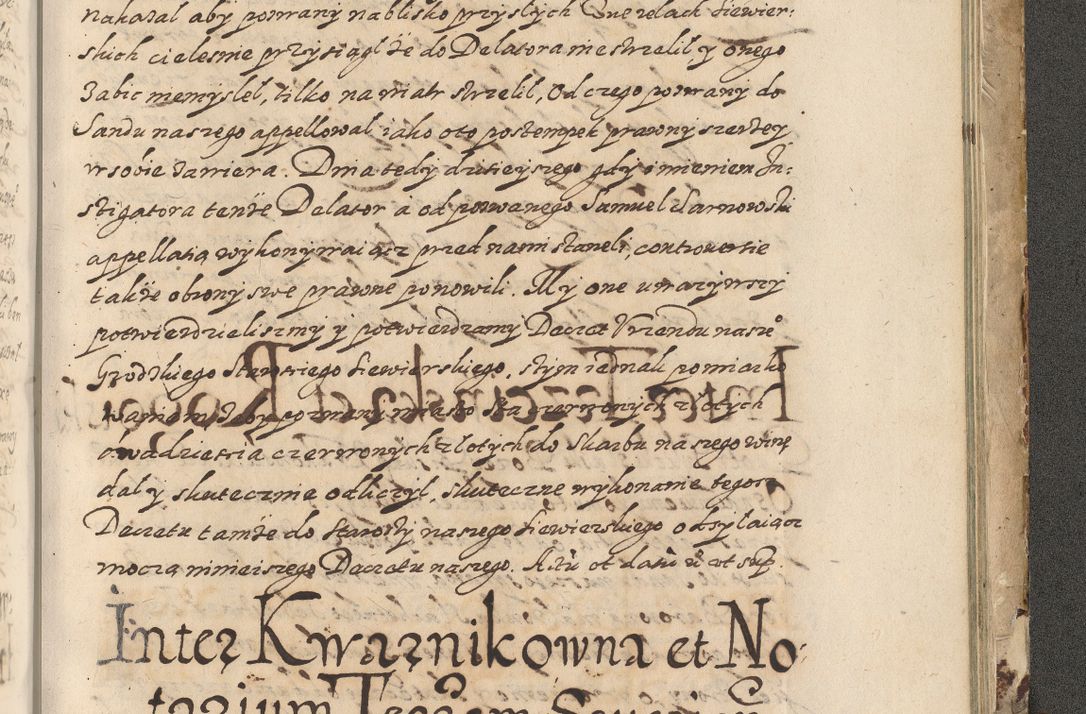 nakazal aby pozwany na blisko przyslych Querelach Siewier:
skich cielesnie przysiągl że do Delatora nie strzelil, y onego
Zabic niemyslel, tilko na wiatr strzelil, Od czego pozwany do
Sandu naszego appellowal iako oto postempek prawny szerzey
w sobie zawiera. Dnia tedy dzisieyszego gdy imieniem In:
stigatora tenże Delator a od pozwanego Samuel Sarnowski
appellatią wykonywaiącz przed nami staneli, controuersie
także obrony swe prawne ponowili. My one uwazywszy
potwierdzielismy y potwierdzamy Decret Vrzendu nasze
Grodzkiego Starostiego Siewierskiego, stym iednak pomiarko
waniem żeby pozwany miasto sta czerwonych zlotych
dwadziescia czerwonych zlotych do Skarbu naszego winę
dal y skutecznie odliczyl, skuteczne wykonanie tegosz
Decretu tamże do Starosty naszego Siewierskiego odsylaiącz
moczą ninieiszego Decretu naszego. Actu et datu ut sup.
Inter Kwaznikowna et No
tarium